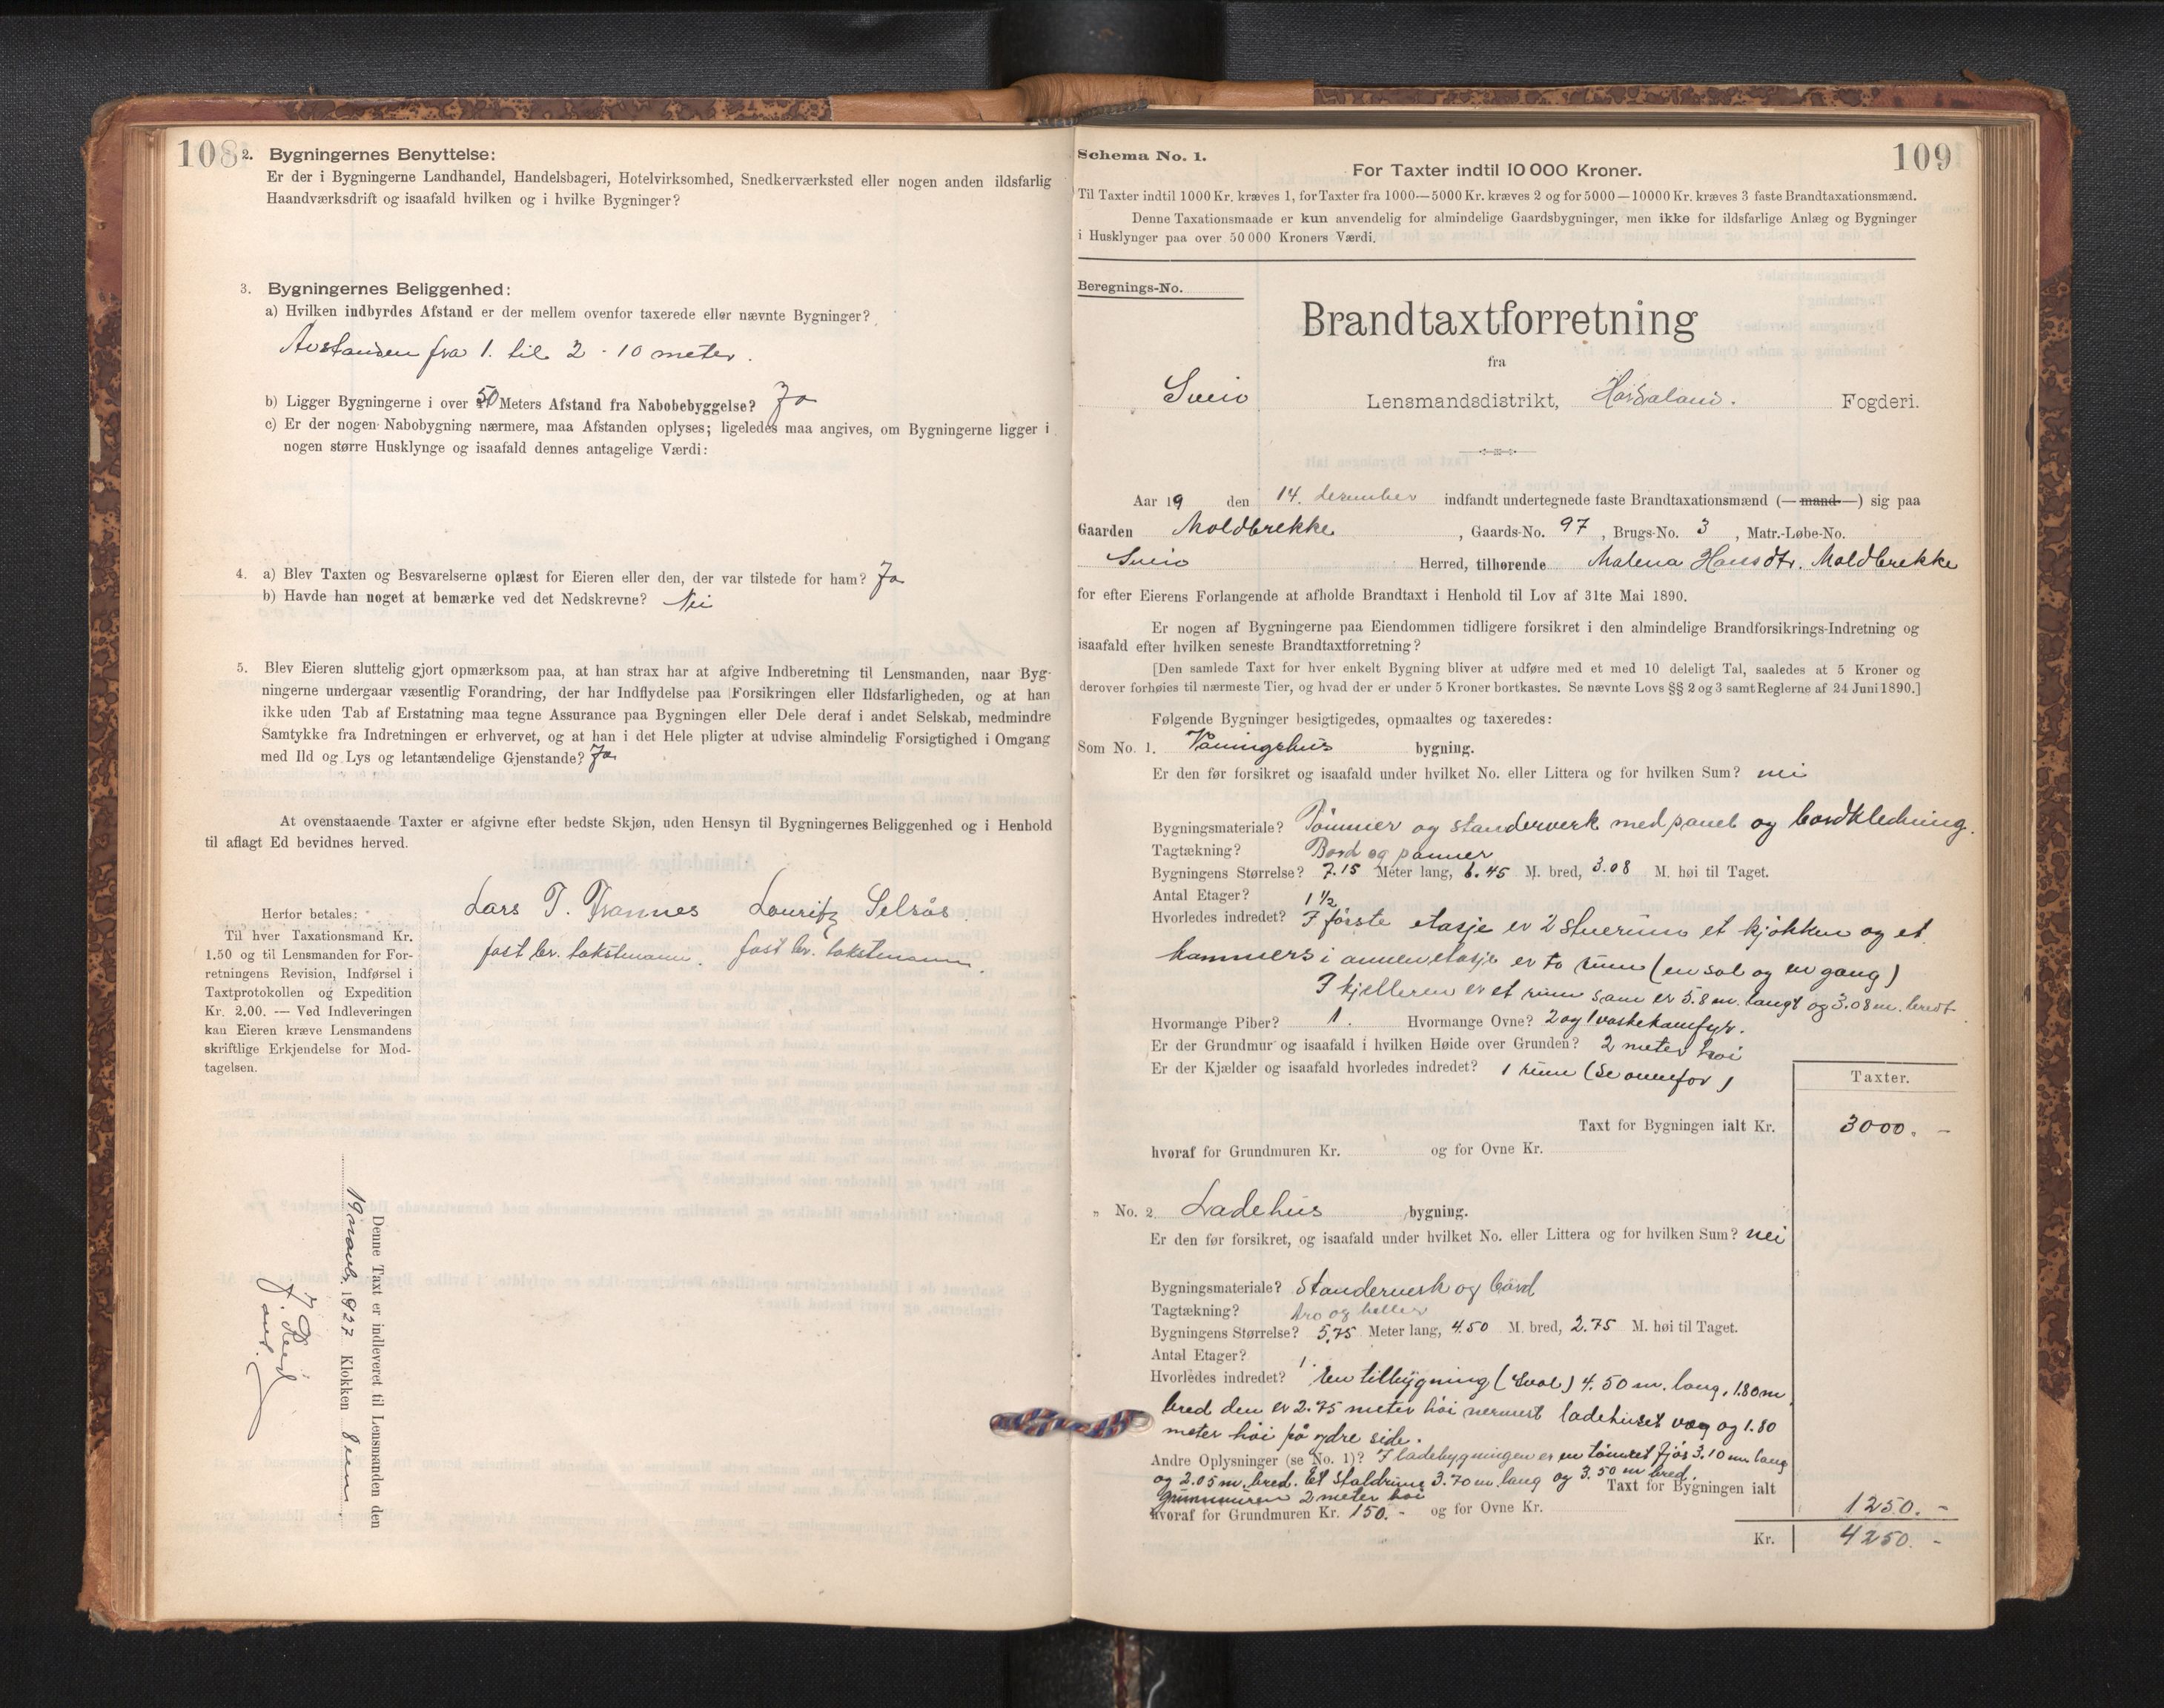 108
2. Bygningernes Benyttelse:
Er der i Bygningerne Landhandel, Handelsbageri, Hotelvirksomhed, Snedkerværksted eller nogen anden ildsfarlig
Haandværksdrift og isaafald hvilken og i hvilke Bygninger?
3. Bygningernes Beliggenhed:
a) Hvilken indbyrdes Afstand er der mellem ovenfor taxerede eller nævnte Bygninger?
Avstanden fra 1. til 2 - 10 meter.
b) Ligger Bygningerne i over 50 Meters Afstand fra Nabobebyggelse? Ja
c) Er der nogen Nabobygning nærmere, maa Afstanden oplyses; ligeledes maa angives, om Bygningerne ligger i
nogen større Husklynge og isaafald dennes antagelige Værdi:
4. a) Blev Taxten og Besvarelserne oplæst for Eieren eller den, der var tilstede for ham? Ja
b) Havde han noget at bemærke ved det Nedskrevne? Nei
5. Blev Eieren sluttelig gjort opmærksom paa, at han strax har at afgive Indberetning til Lensmanden, naar Byg-
ningerne undergaar væsentlig Forandring, der har Indflydelse paa Forsikringen eller Ildsfarligheden, og at han
ikke uden Tab af Erstatning maa tegne Assurance paa Bygningen eller Dele deraf i andet Selskab, medmindre
Samtykke fra Indretningen er erhvervet, og at han i det Hele pligter at udvise almindelig Forsigtighed i Omgang
med Ild og Lys og letantændelige Gjenstande? Ja
At ovenstaaende Taxter er afgivne efter bedste Skjøn, uden Hensyn til Bygningernes Beliggenhed og i Henhold
til aflagt Ed bevidnes herved.
Lars T. Trannes Lauritz Selsås
fast br. takstmann. fast br. takstmann.
Herfor betales:
Til hver Taxationsmand Kr.
1.50 og til Lensmanden for For-
retningens Revision, Indførsel i
Taxtprotokollen og Expedition
Kr. 2.00. — Ved Indleveringen
kan Eieren kræve Lensmandens
skriftlige Erkjendelse for Mod-
tagelsen.
Denne Taxt er indleveret til Lensmanden den
19 mars 1927 Klokken 8 em
109
Schema No. 1.
For Taxter indtil 10 000 Kroner.
Til Taxter indtil 1000 Kr. kræves 1, for Taxter fra 1000—5000 Kr. kræves 2 og for 5000—10000 Kr. kræves 3 faste Brandtaxationsmænd.
Denne Taxationsmaade er kun anvendelig for almindelige Gaardsbygninger, men ikke for ildsfarlige Anlæg og Bygninger
i Husklynger paa over 50 000 Kroners Værdi.
Beregnings-No.
Brandtaxtforretning
fra
Sveio Lensmandsdistrikt, Hordaland. Fogderi.
Aar 19 den 14. desember indfandt undertegnede faste Brandtaxationsmænd (— mand —) sig paa
Gaarden Moldbrekke, Gaards-No. 97, Brugs-No. 3, Matr.-Løbe-No.
Sveio Herred, tilhørende Malena Hansdtr. Moldbrekke
for efter Eierens Forlangende at afholde Brandtaxt i Henhold til Lov af 31te Mai 1890.
Er nogen af Bygningerne paa Eiendommen tidligere forsikret i den almindelige Brandforsikrings-Indretning og
isaafald efter hvilken seneste Brandtaxtforretning?
[Den samlede Taxt for hver enkelt Bygning bliver at udføre med et med 10 deleligt Tal, saaledes at 5 Kroner og
derover forhøies til nærmeste Tier, og hvad der er under 5 Kroner bortkastes. Se nævnte Lovs §§ 2 og 3 samt Reglerne af 24 Juni 1890.]
Følgende Bygninger besigtigedes, opmaaltes og taxeredes:
Som No. 1. Våningshus bygning.
Er den før forsikret og isaafald under hvilket No. eller Littera og for hvilken Sum? nei
Bygningsmateriale? Tømmer og standerverk med panel og bordkledning.
Tagtækning? Bord og panner
Bygningens Størrelse? 7.15 Meter lang, 6.45 M. bred, 3.08 M. høi til Taget.
Antal Etager? 1 ½
Hvorledes indredet? I første etasje er 2 stuerum et kjøkken og et
kammers i annen etasje er to rum (en sal og en gang)
I kjelleren er et rum som er 5.8 m. langt og 3.08 m. bredt.
Hvormange Piber? 1. Hvormange Ovne? 2 og 1 vaskekamfyr.
Er der Grundmur og isaafald i hvilken Høide over Grunden? 2 meter høi
Er der Kjælder og isaafald hvorledes indredet? 1 rum (se ovenfor)
Taxter.
Taxt for Bygningen ialt Kr. 3000. -
hvoraf for Grundmuren Kr. og for Ovne Kr.
„ No. 2 Ladehus bygning.
Er den før forsikret, og isaafald under hvilket No. eller Littera og for hvilken Sum? nei
Bygningsmateriale? Standerverk og bord
Tagtækning? tro og heller
Bygningens Størrelse? 5,75 Meter lang, 4.50 M. bred, 2.75 M. høi til Taget.
Antal Etager? 1.
Hvorledes indredet? En tilbygning (sval) 4.50 m. lang, 1.80 m
bred den er 2.75 meter høi nermest ladehuset væg og 1.80
meter høi på ydre side.
Andre Oplysninger (se No. 1)? I ladebygningen er en tømret fjøs 3.10 m. lang
og 2.05 m. bred. Et staldrum 3.70 m. lang og 3.50 m bred.
grunnmuren 2 meter høi Taxt for Bygningen ialt 1250. -
hvoraf for Grundmuren Kr. 150. - og for Ovne Kr.
Kr. 4250. -